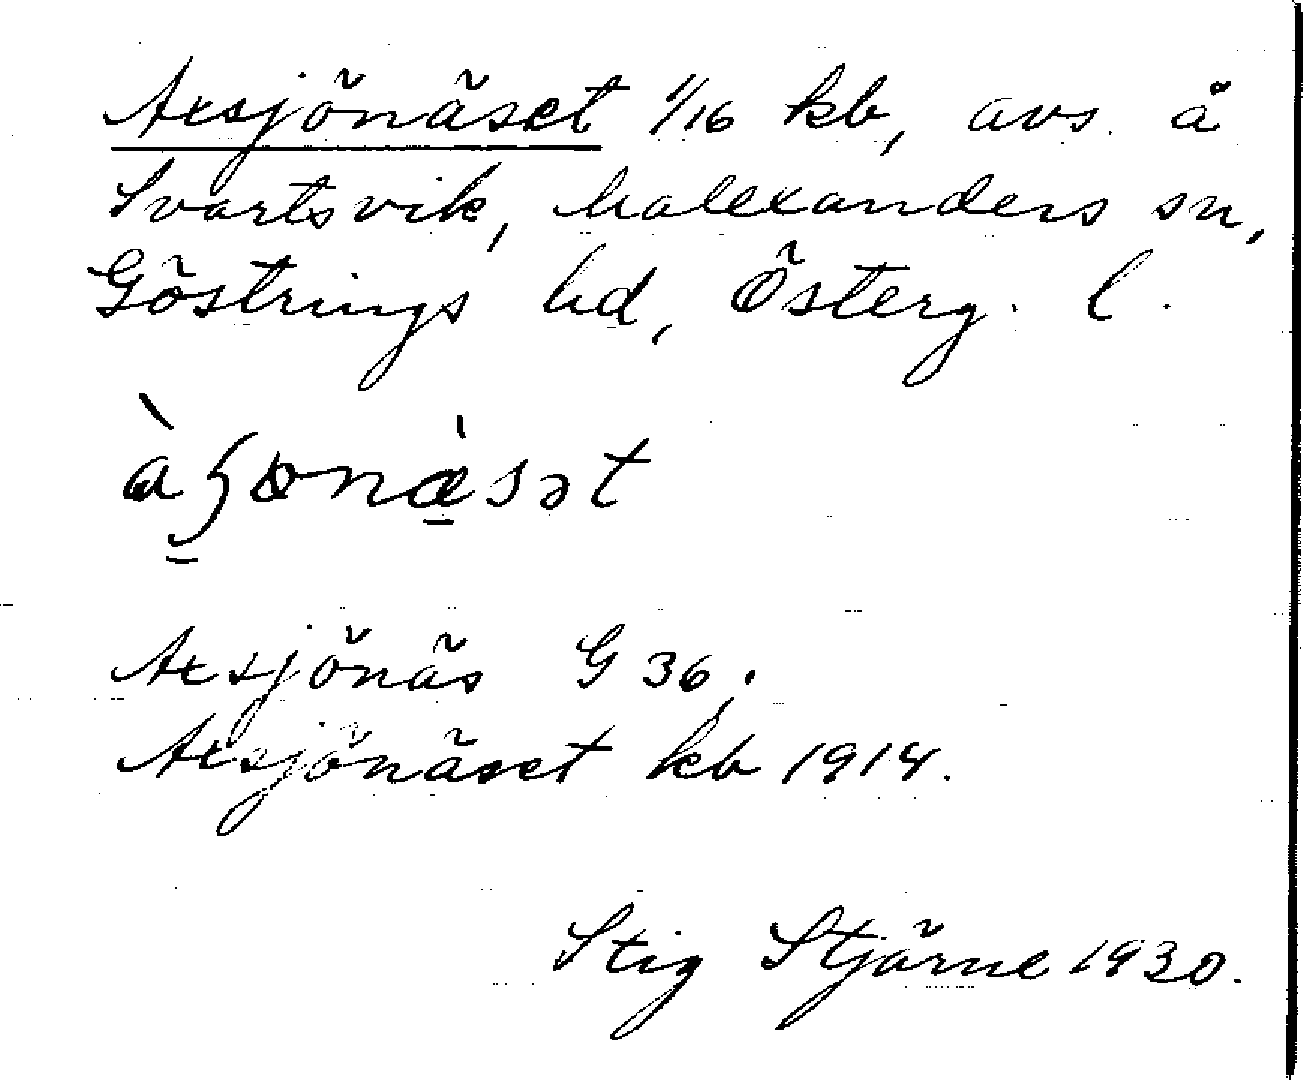 Axsjönäset 1/16 kb, avs. å
Svartsvik, Malexanders sn,
Göstrings hd, Österg. l.
Axsjönäs G 36.
Axsjönäset kb 1914.
Stig Stjärne 1930.